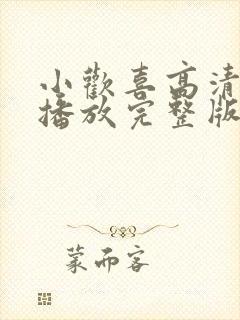 小歡喜高清
播放完整版
蒙而客